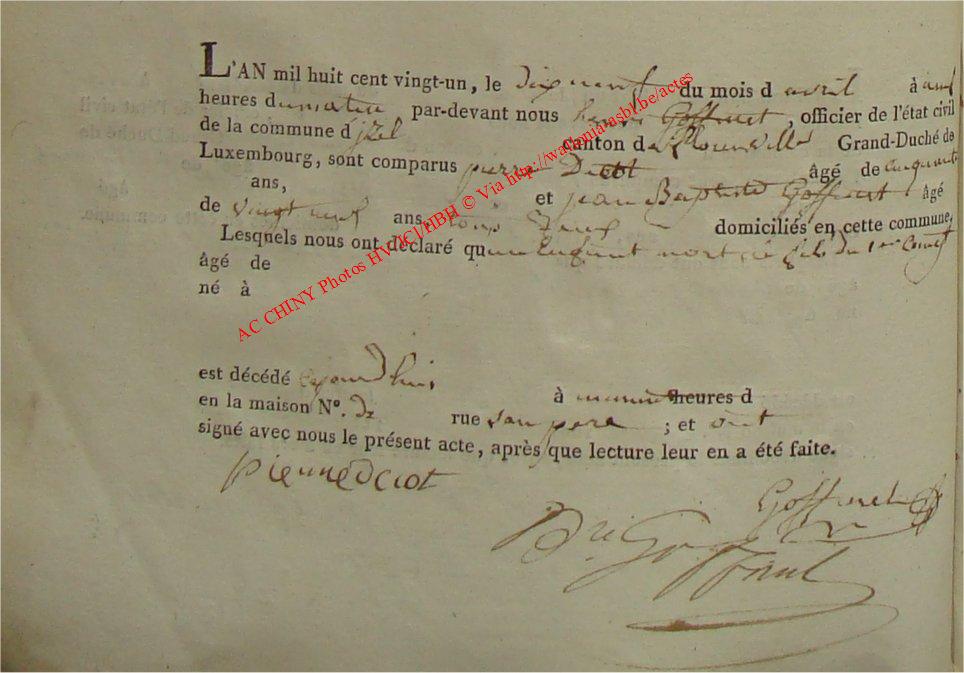 L'AN mil huit cent vingt-un, le dix neuf du mois d avril à neuf
heures du matin par-devant nous henri Goffinet, officier de l'état civil
de la commune d jzel canton de florenville Grand-Duché de
Luxembourg, sont comparus pierre Decot âgé de cinquante
ans, et jean Baptiste Goffinet âgé
de vingt neuf ans, tous deux domiciliés en cette commune,
Lesquels nous ont déclaré qu un Enfant mort né fils du 1er Compt
âgé de
né à
est décédé aujourd'huis
à minuit heures d
en la maison N°. de rue son pere ; et ont
signé avec nous le présent acte, après que lecture leur en a été faite.
pierre decot
Goffinet
Goffinet
AC CHINY Photos HV/JCJ/HBH © Via http://wallonia-asbl.be/actes